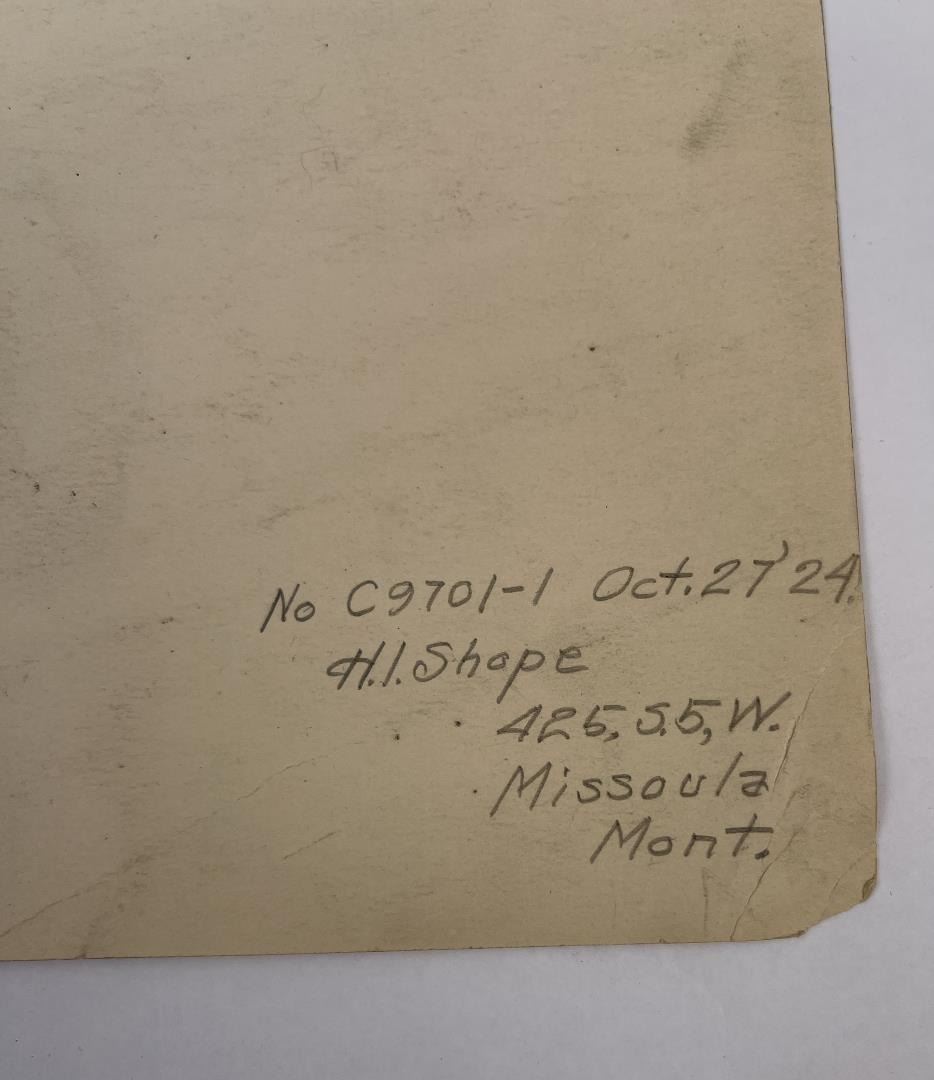 No C9701-1 Oct. 27 '24.
H.I. Shope
425, S.5, W.
Missoula
Mont.